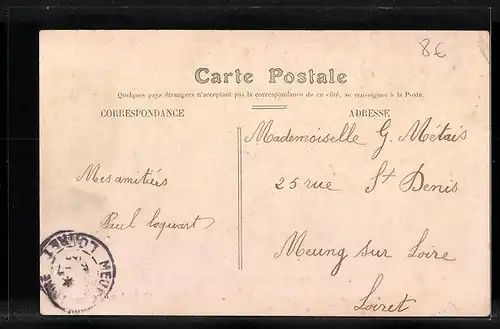 8€
Carte Postale
Quelques pays étrangers n'acceptant pas la correspondance de ce côté, se renseigner à la Poste.
CORRESPONDANCE
ADRESSE
Mademoiselle G. Métais
25 rue St Denis
Meung sur Loire
Loiret
Mes amitiés
Paul
LOIRET